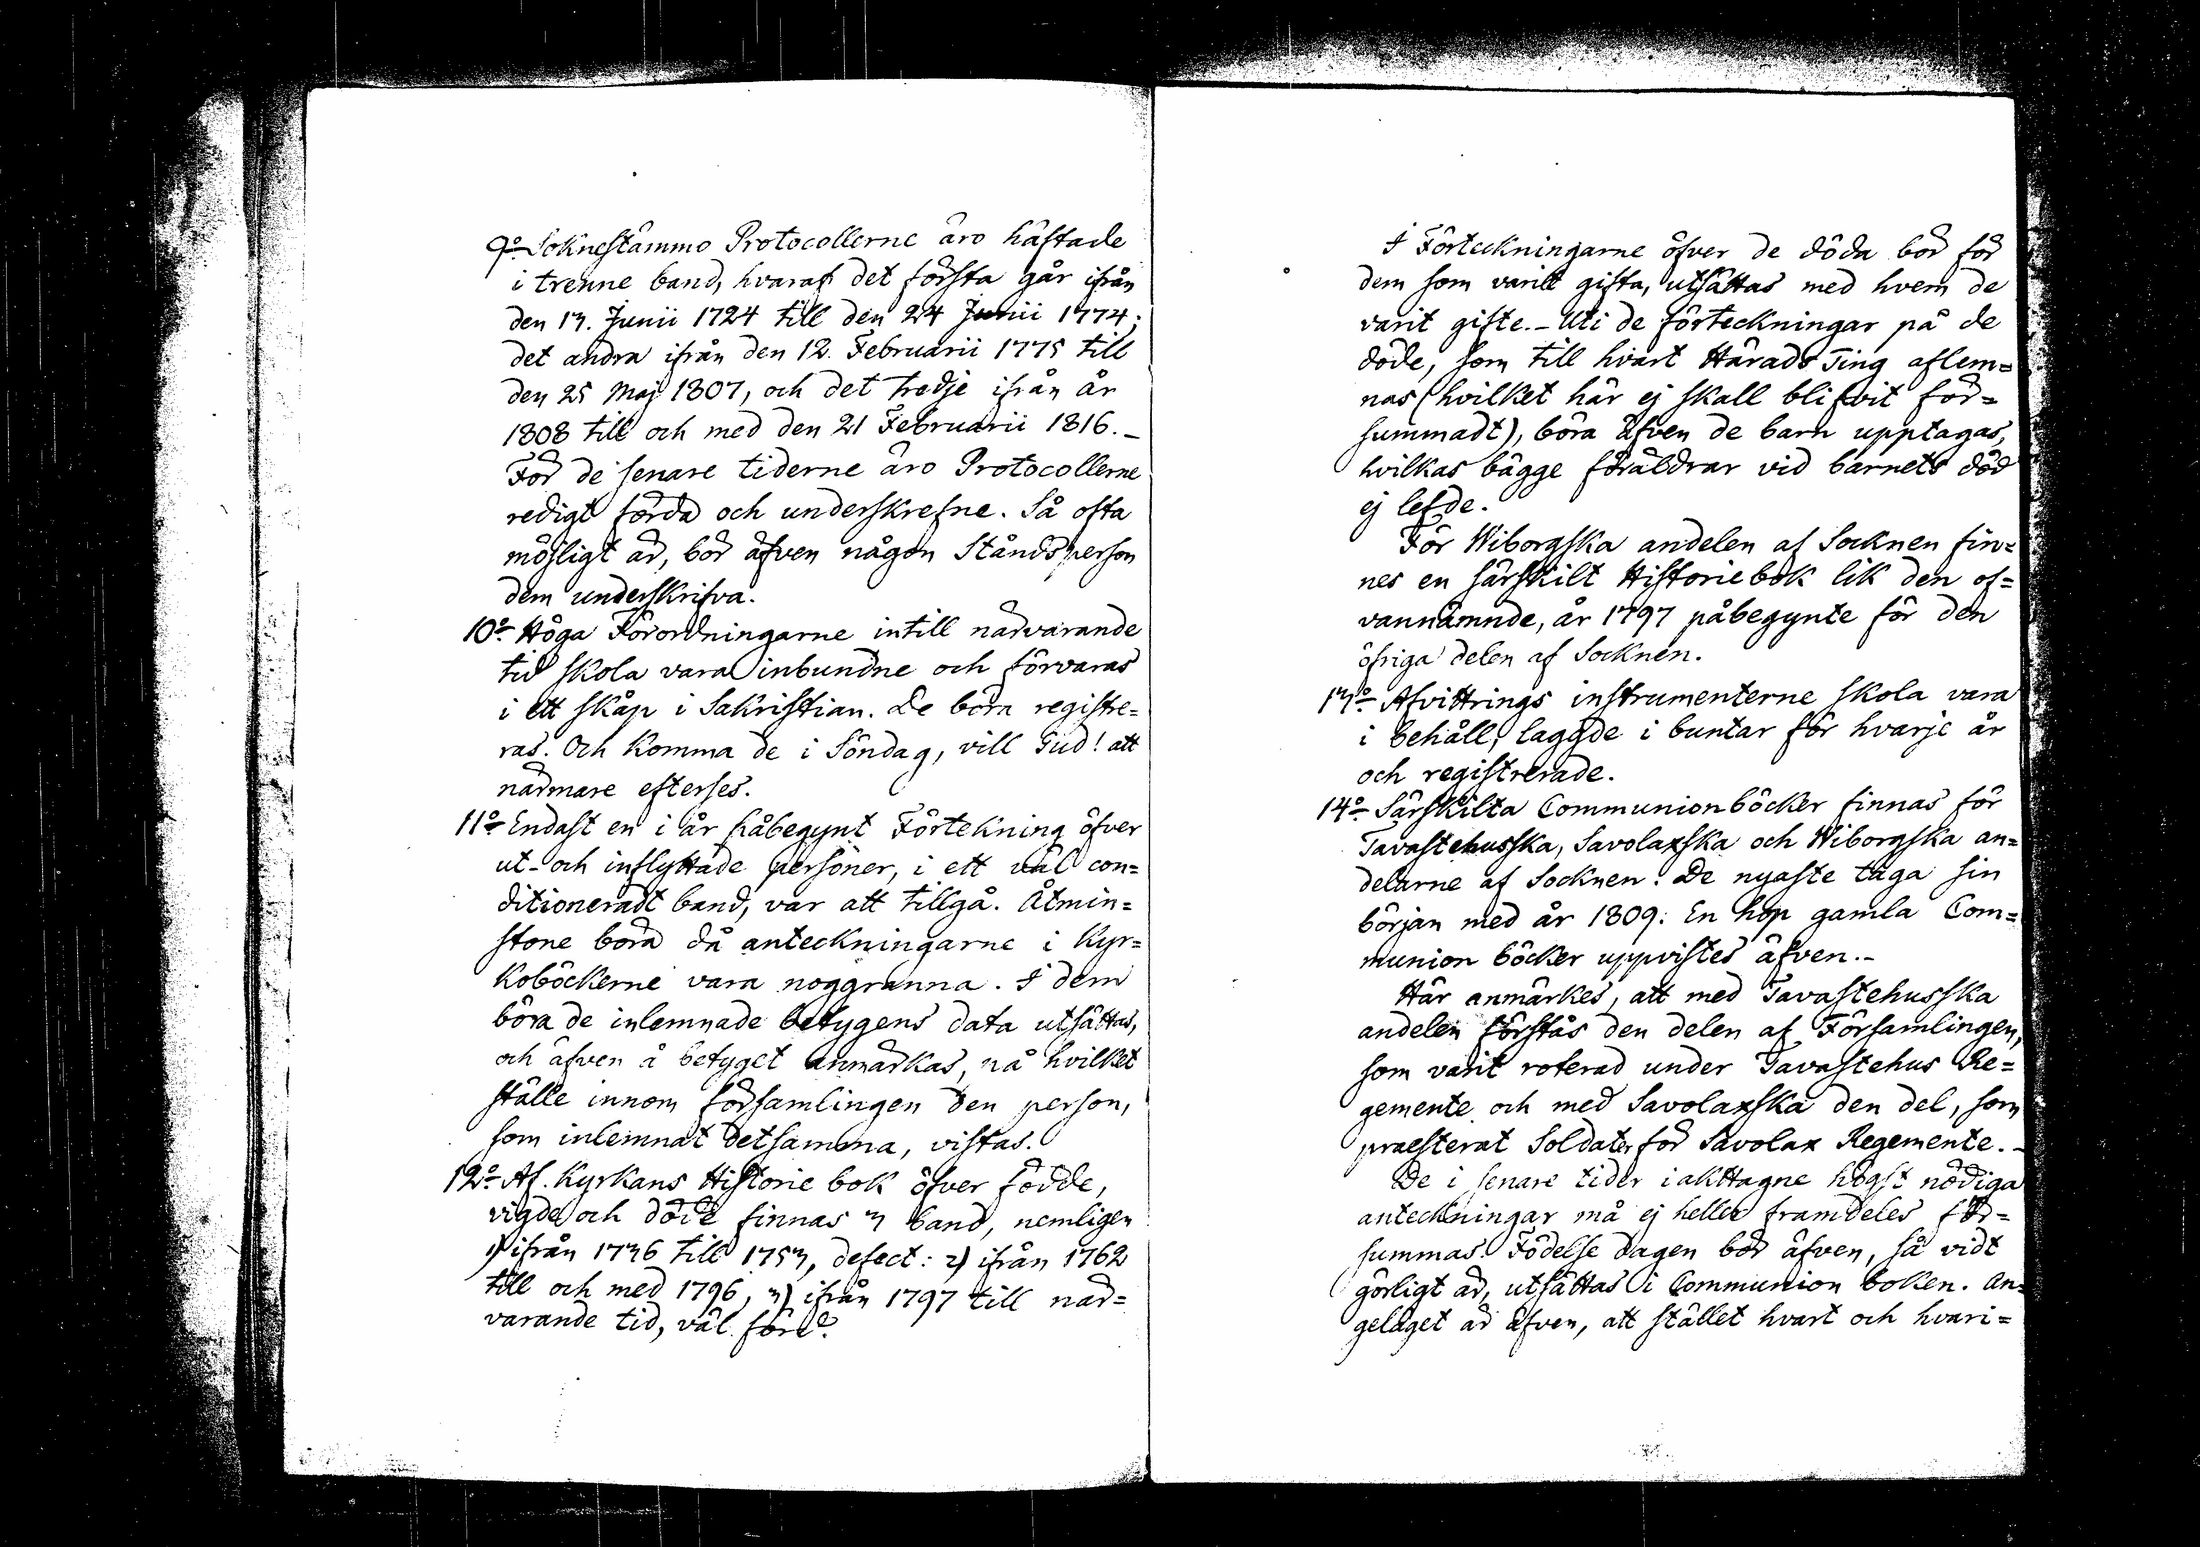 9:o Soknestämmo Protocollerne äro häftade
i trenne band, hvaraf det första går ifrån
den 13. Junii 1724 till den 24 Junii 1774;
det andra ifrån den 12. Februarii 1775 till
den 25 Maj 1807, och det tredje ifrån år
1808 till och med den 21 Februarii 1816._
För de senare tiderne äro Protocollerne
redigt förda och underskrefne. Så ofta
möjligt är, bör äfven någon Ståndsperson
dem underskrifva.
10:o Höga Förordningarne intill närvarande
tid skola vara inbundne och förvaras
i ett skåp i Sakristian. De böra registre=
ras. Och komma de i Söndag, vill Gud! att
närmare efterses.
11:o Endast en i år påbegynt Förtekning öfver
ut- och inflyttade personer, i ett väl con=
ditioneradt band, var att tillgå. Åtmin=
stone böra då anteckningarne i Kyr=
koböckerne vara noggranna. I dem
böra de inlemnade betygens data utsättas,
och äfven å betyget anmärkas, på hvilket
ställe innom församlingen den person,
som inlemnat detsamma, vistas.
12:o Af Kyrkans Historie bok öfver födde,
vigde och döde finnas 3 band, nemligen
1) ifrån 1736 till 1753, defect: 2) ifrån 1762
till och med 1796, 3) ifrån 1797 till när=
varande tid, väl förd.
I Förteckningarne öfver de döda bör för
dem som varitt gifta, utsättas med hvem de
varit gifte._ Uti de förteckningar på de
döde, som till hvart Härads Ting aflem=
nas (hvilket här ej skall blifvit för=
summadt), böra äfven de barn upptagas,
hvilkas bägge föräldrar vid barnets död
ej lefde.
För Wiborgska andelen af Socknen fin=
nes en särskilt Historiebok lik den of=
vannämnde, år 1797 påbegynte för den
öfriga delen af Socknen.
13:o Afvittrings instrumenterne skola vara
i behåll, laggde i buntar för hvarje år
och registrerade.
14:o Särskilta Communionböcker finnas för
Tavastehusska, Savolaxska och Wiborgska an=
delarne af Socknen. De nyaste taga sin
början med år 1809. En hop gamla Com=
munion böcker uppvistes äfven._
Här anmärkes, att med Tavastehusska
andelen förstås den delen af Församlingen,
som varit roterad under Tavastehus Re=
gemente och med Savolaxska den del, som
praesterat Soldater för Savolax Regemente._
De i senare tider iakttagne högst nödiga
anteckningar må ej heller framdeles för=
summas. Födelse dagen bör äfven, så vidt
görligt är, utsättas i Communion boken. An=
geläget är äfven, att stället hvart och hvari=